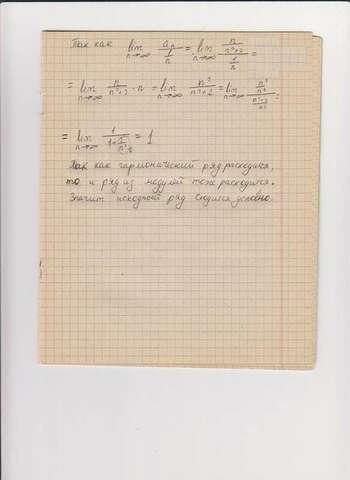 Так как lim n→∞ aₙ / (1/n) = lim n→∞ (n/(n²+2)) / (1/n) =
= lim n→∞ n/(n²+2) · n = lim n→∞ n²/(n²+2) = lim n→∞ (n²/n²) / ((n²+2)/n²) =
= lim n→∞ 1/(1+2/n²) = 1
Так как гармонический ряд расходится,
то и ряд из модулей тоже расходится.
Значит исходный ряд сходится условно.